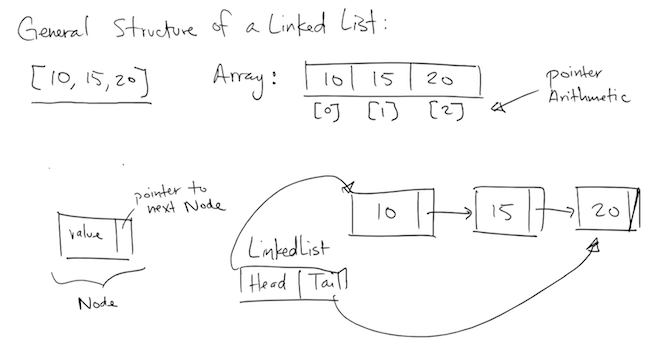 General Structure of a Linked List:
[10, 15, 20]
Array:
10 15 20
[0] [1] [2]
pointer
Arithmetic
pointer to
next Node
value
Node
LinkedList
Head Tail
10 15 20